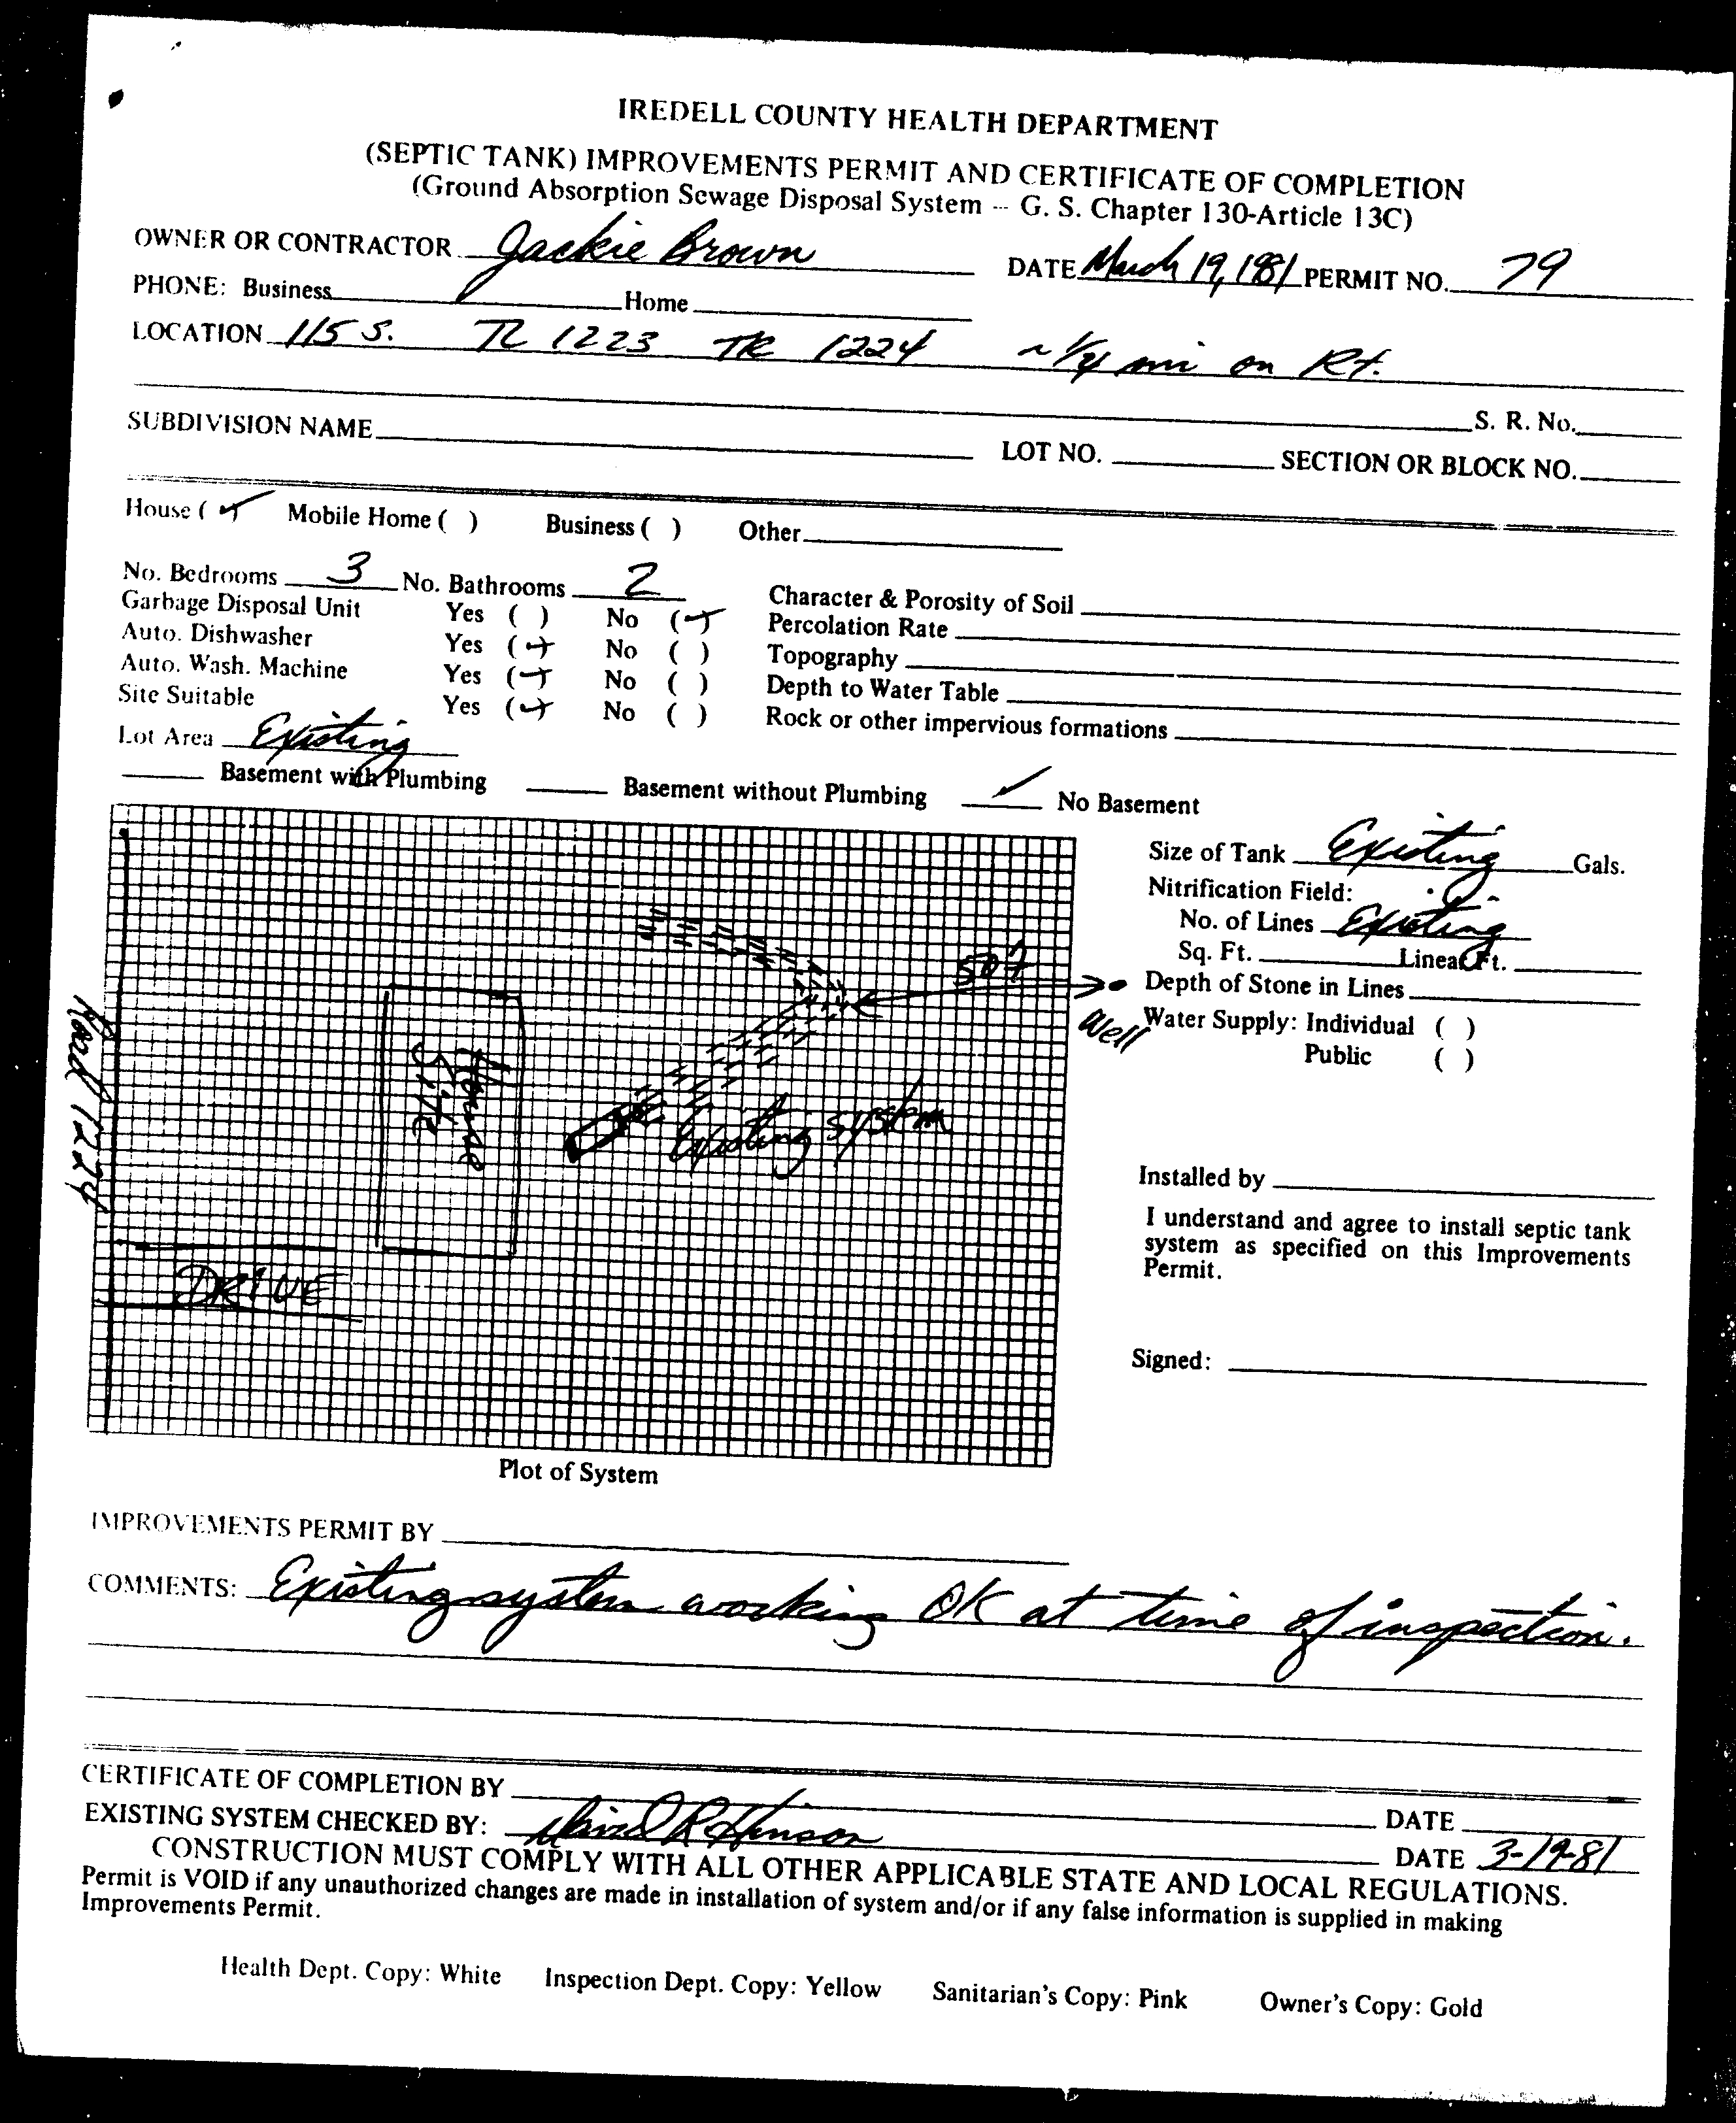 IREDELL COUNTY HEALTH DEPARTMENT
(SEPTIC TANK) IMPROVEMENTS PERMIT AND CERTIFICATE OF COMPLETION
(Ground Absorption Sewage Disposal System -- G. S. Chapter 130-Article 13C)
OWNER OR CONTRACTOR Jackie Brown DATE March 19, 1981 PERMIT NO. 79
PHONE: Business Home
LOCATION 115 S. TL 1223 TR 1224 ~ 1/4 mi on Rt.
S. R. No.
SUBDIVISION NAME LOT NO. SECTION OR BLOCK NO.
House (✓) Mobile Home ( ) Business ( ) Other
No. Bedrooms 3 No. Bathrooms 2 Character & Porosity of Soil
Garbage Disposal Unit Yes ( ) No (✓) Percolation Rate
Auto. Dishwasher Yes (✓) No ( ) Topography
Auto. Wash. Machine Yes (✓) No ( ) Depth to Water Table
Site Suitable Yes (✓) No ( ) Rock or other impervious formations
Lot Area Existing
Basement with Plumbing Basement without Plumbing ✓ No Basement
Size of Tank Existing Gals.
Nitrification Field:
No. of Lines Existing
Sq. Ft. Linear Ft.
Depth of Stone in Lines
Water Supply: Individual ( )
Public ( )
Well
Road 1224
House
Site
Existing system
DRIVE
Installed by
I understand and agree to install septic tank
system as specified on this Improvements
Permit.
Signed:
Plot of System
IMPROVEMENTS PERMIT BY
COMMENTS: Existing system working OK at time of inspection.
CERTIFICATE OF COMPLETION BY DATE
EXISTING SYSTEM CHECKED BY: DATE 3-19-81
CONSTRUCTION MUST COMPLY WITH ALL OTHER APPLICABLE STATE AND LOCAL REGULATIONS.
Permit is VOID if any unauthorized changes are made in installation of system and/or if any false information is supplied in making
Improvements Permit.
Health Dept. Copy: White Inspection Dept. Copy: Yellow Sanitarian's Copy: Pink Owner's Copy: Gold